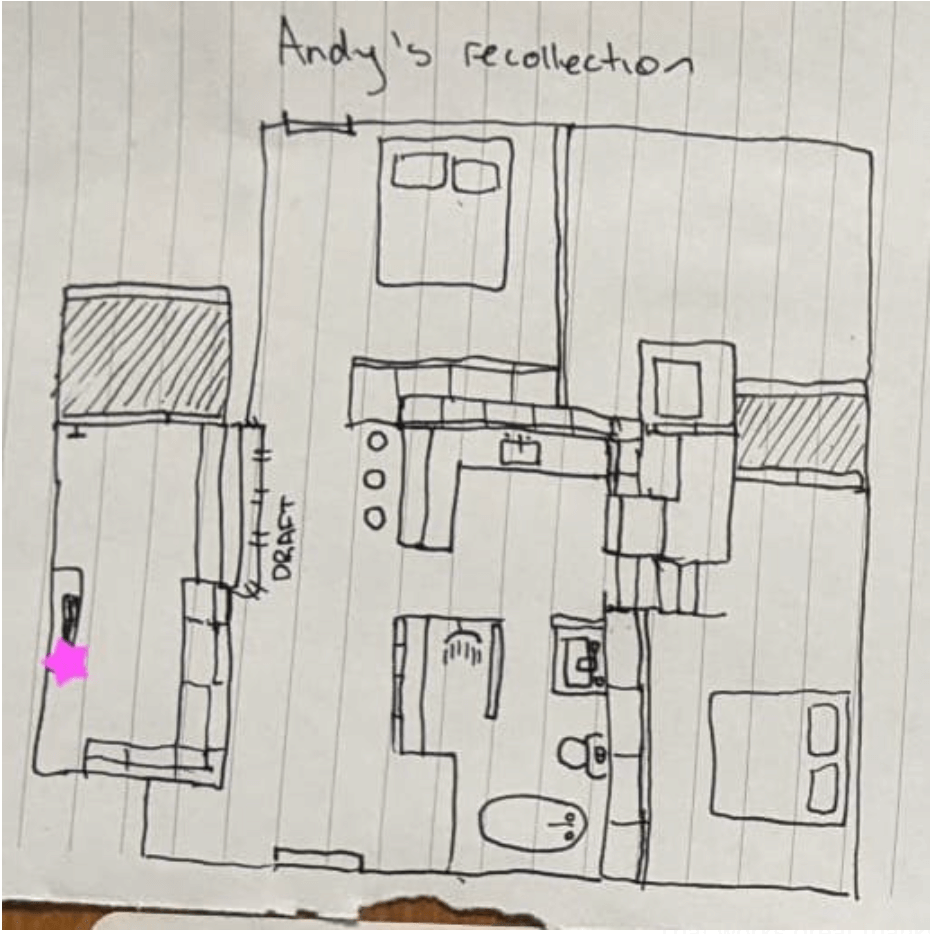 Andy's recollection
DRAFT